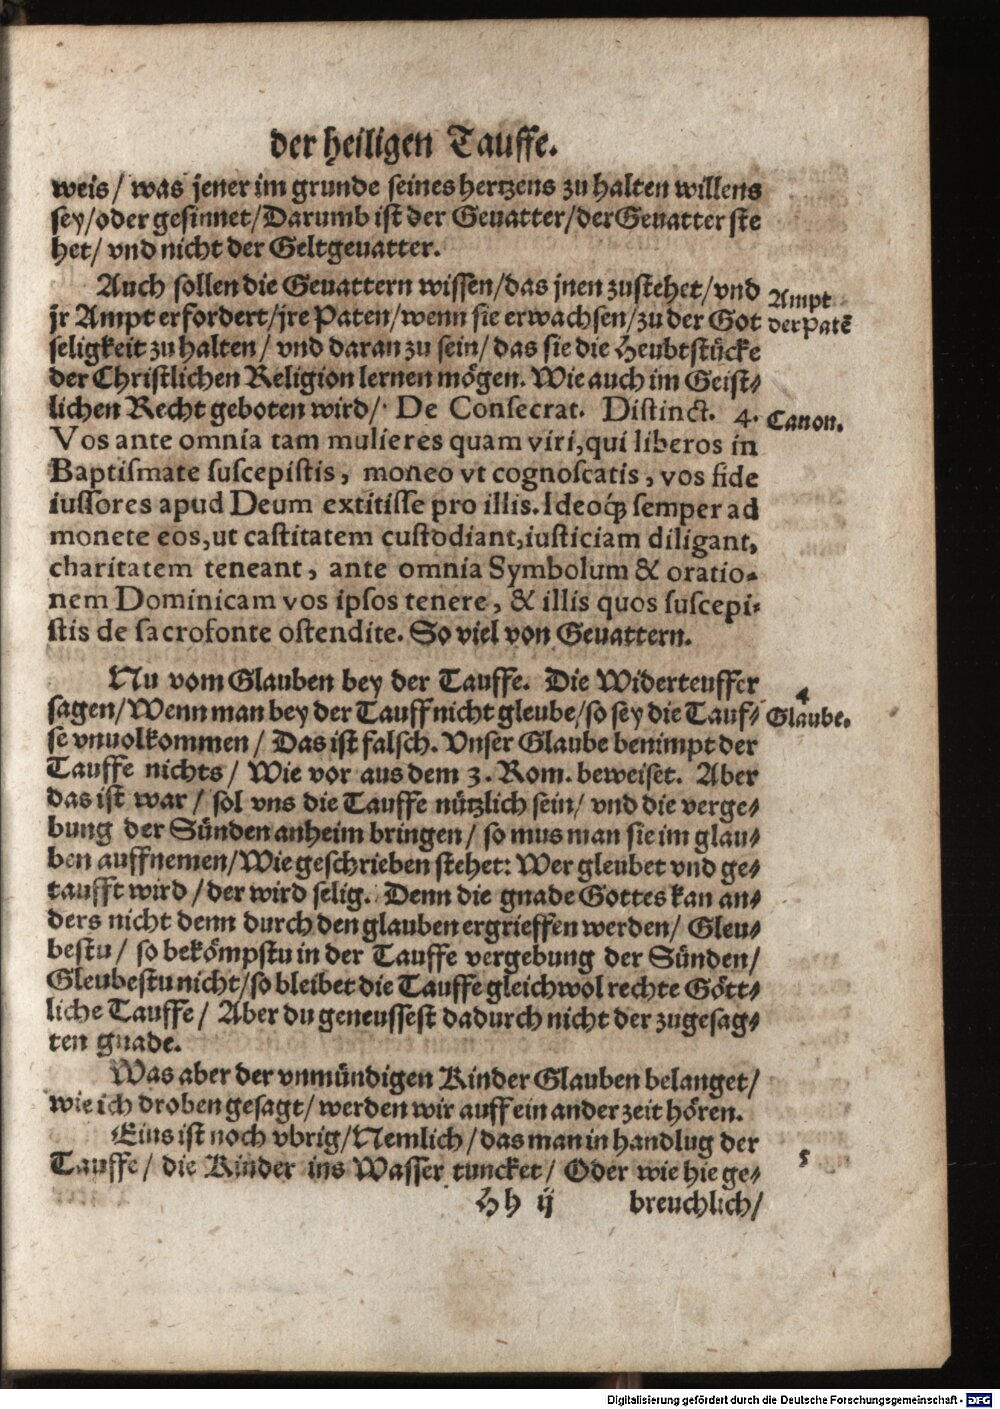 der heiligen Tauffe.
weis/ was jener im grunde seines hertzens zu halten willens
sey/oder gesinnet/Darumb ist der Geuatter/der Geuatter ste
het/ vnd nicht der Geltgeuatter.
Auch sollen die Geuattern wissen/das jnen zustehet/vnd
jr Ampt erfordert/jre Paten/wenn sie erwachsen/zu der Got
seligkeit zu halten/ vnd daran zu sein/ das sie die Heubtstücke
der Christlichen Religion lernen mögen. Wie auch im Geist⸗
lichen Recht geboten wird/ De Consecrat. Distinct. 4.
Vos ante omnia tam mulieres quam viri, qui liberos in
Baptismate suscepistis, moneo vt cognoscatis, vos fide
iussores apud Deum extitisse pro illis. Ideoq́; semper ad
monete eos, ut castitatem custodiant, iusticiam diligant,
charitatem teneant, ante omnia Symbolum & oratio-
nem Dominicam vos ipsos tenere, & illis quos suscepi-
stis de sacrofonte ostendite. So viel von Geuattern.
Ampt
der Patē
Canon.
Nu vom Glauben bey der Tauffe. Die Widerteuffer
sagen/Wenn man bey der Tauff nicht gleube/so sey die Tauf⸗
se vnuolkommen/ Das ist falsch. Vnser Glaube benimpt der
Tauffe nichts/ Wie vor aus dem 3. Rom. beweiset. Aber
das ist war/ sol vns die Tauffe nützlich sein/ vnd die verge⸗
bung der Sünden anheim bringen/ so mus man sie im glau⸗
ben auffnemen/Wie geschrieben stehet: Wer gleubet vnd ge⸗
taufft wird/der wird selig. Denn die gnade Gottes kan an⸗
ders nicht denn durch den glauben ergrieffen werden/ Gleu⸗
bestu/ so bekömpstu in der Tauffe vergebung der Sünden/
Gleubestu nicht/so bleibet die Tauffe gleichwol rechte Gött⸗
liche Tauffe/ Aber du geneussest dadurch nicht der zugesag⸗
ten gnade.
4
Glaube.
Was aber der vnmündigen Kinder Glauben belanget/
wie ich droben gesagt/ werden wir auff ein ander zeit hören.
Eins ist noch vbrig/Nemlich/das man in handlug der
Tauffe/ die Kinder ins Wasser tuncket/ Oder wie hie ge⸗
5
Hh ij
breuchlich/
Digitalisierung gefördert durch die Deutsche Forschungsgemeinschaft - DFG